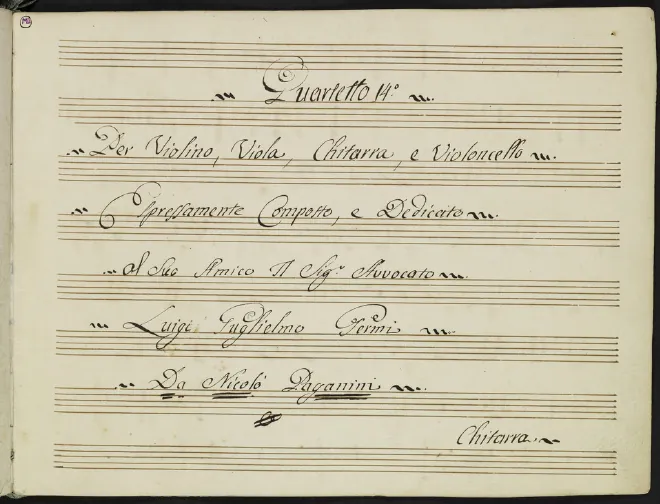 Quartetto 14º
Per Violino, Viola, Chitarra, e Violoncello
Espressamente Composto, e Dedicato
Al Suo Amico Il Sigr. Avvocato
Luigi Guglielmo Germi
Da Nicolò Paganini
Chitarra